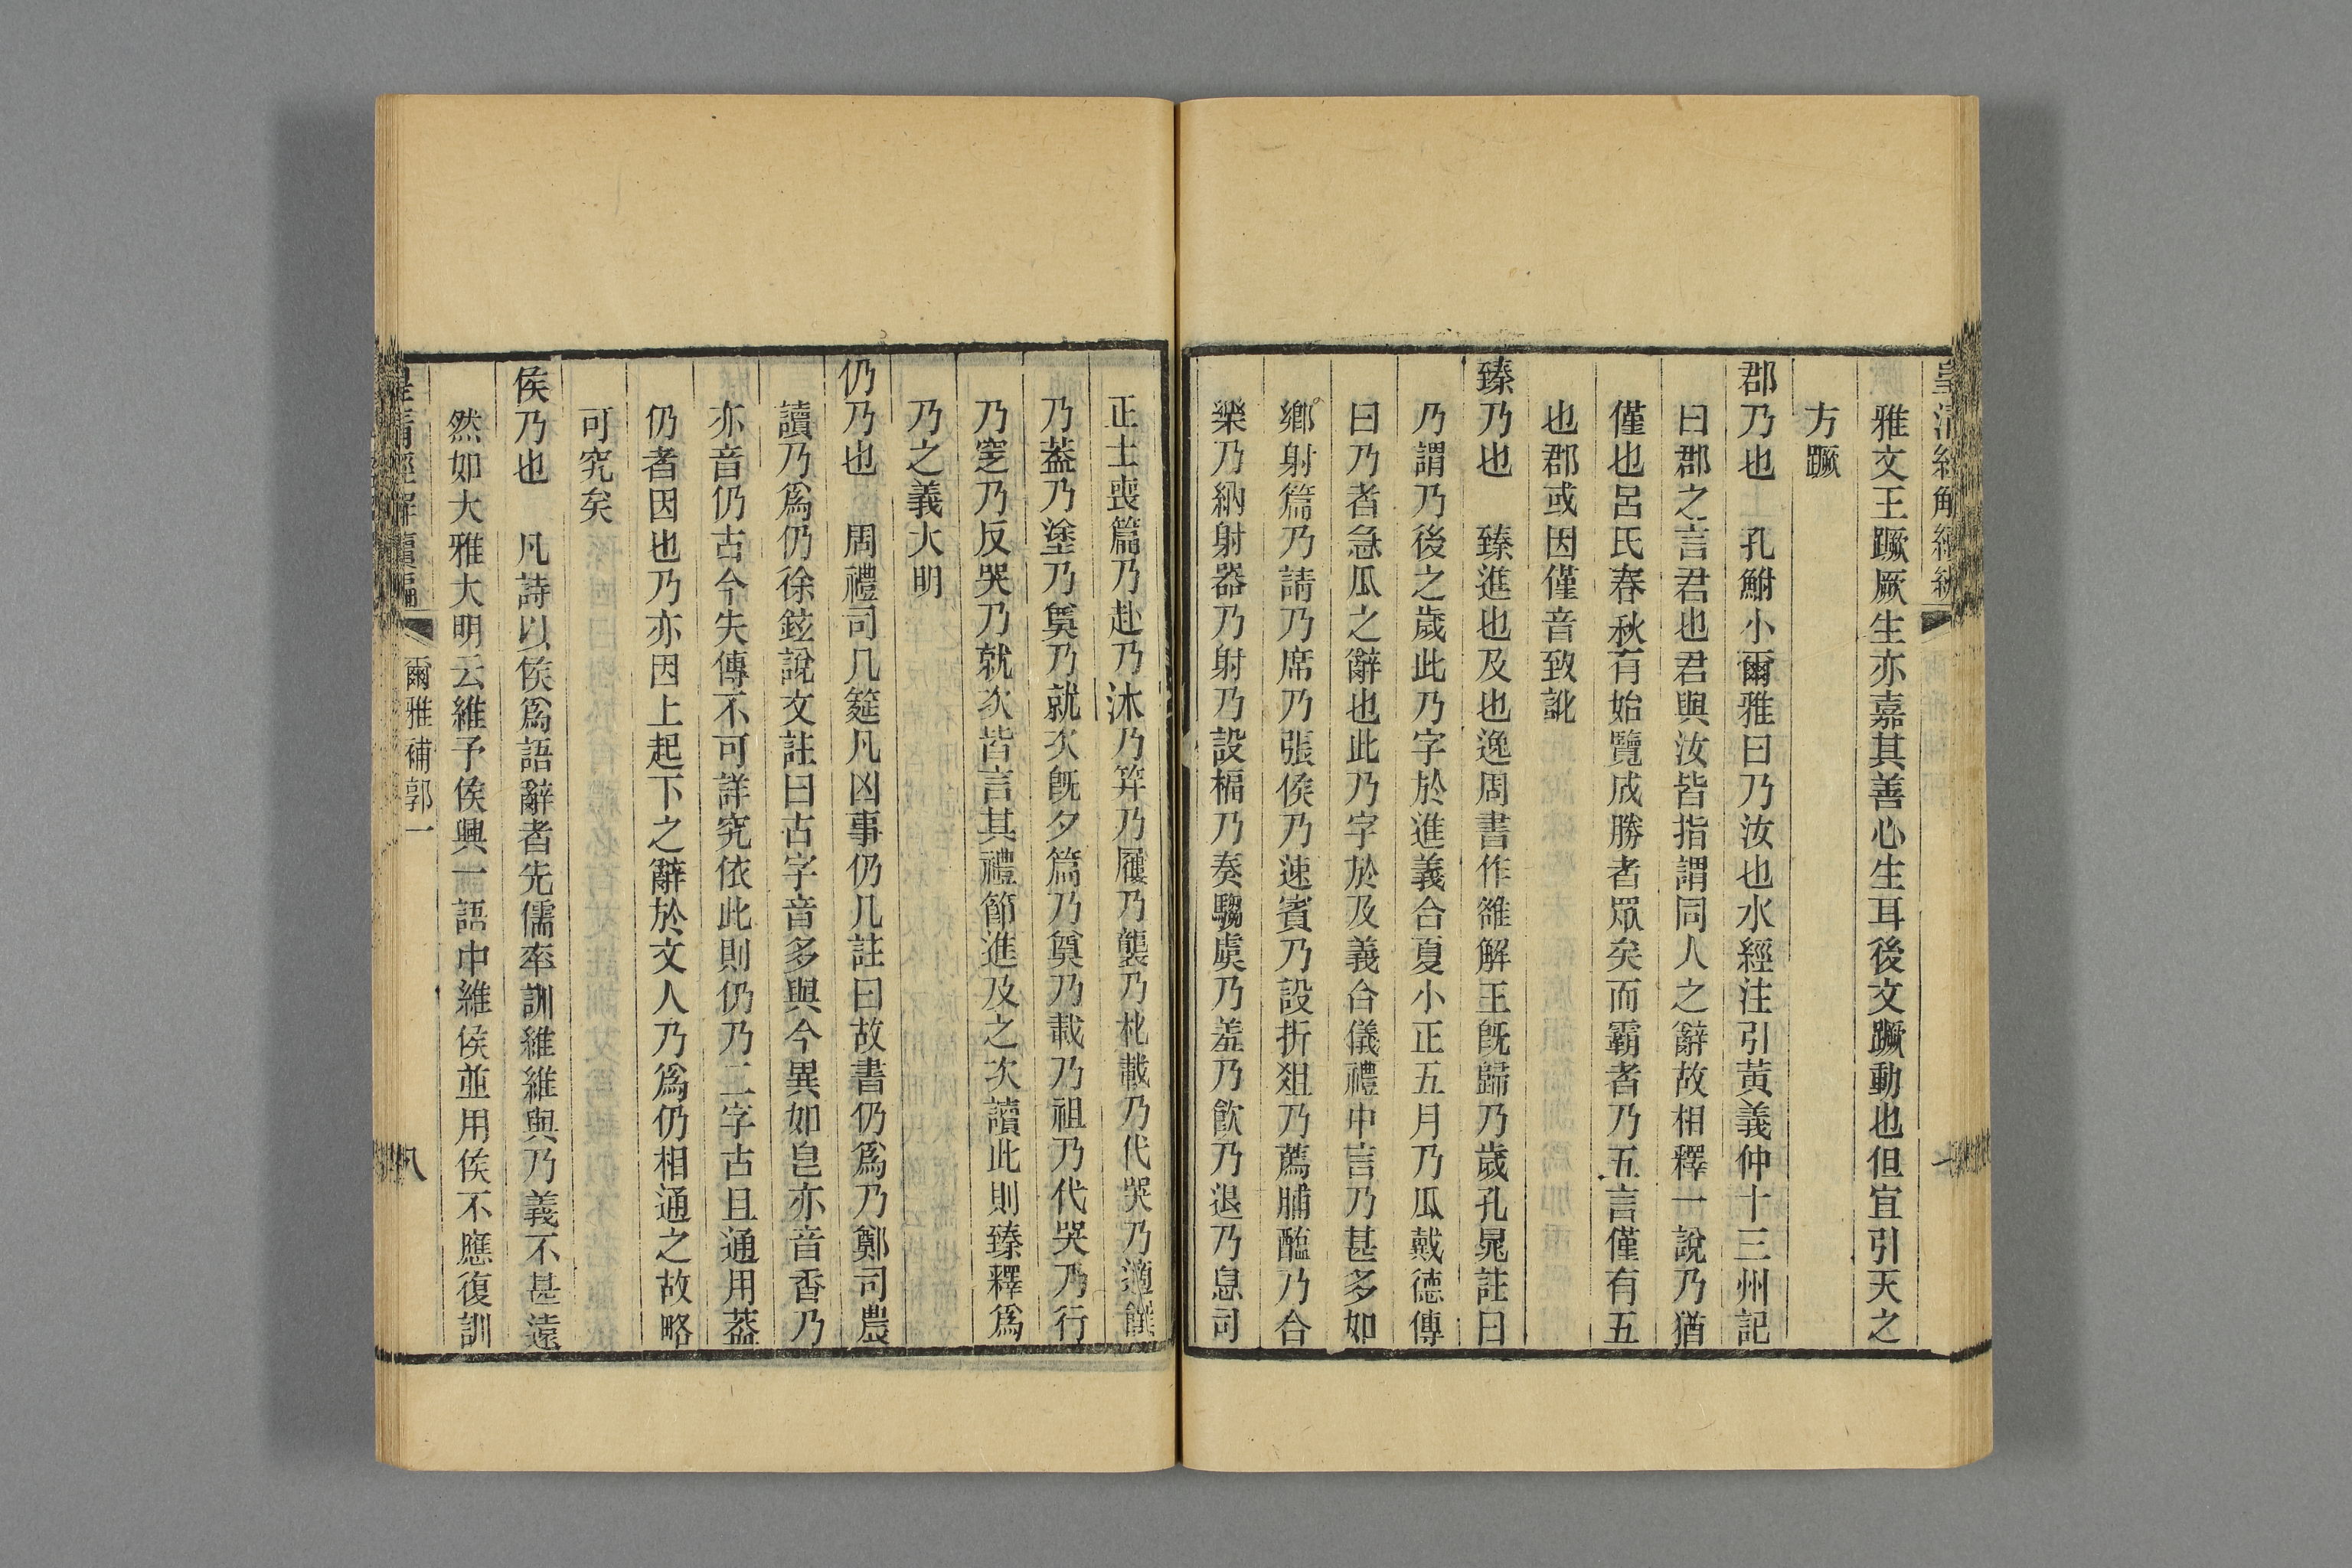 雅文王蹶厥生亦嘉其善心生耳後文蹶動也但宜引天之
方蹶
郡乃也 孔鮒小爾雅曰乃汝也水經注引黃義仲十三州記
曰郡之言君也君與汝皆指謂同人之辭故相釋一說乃猶
僅也呂氏春秋有始覽成勝者眾矣而霸者乃五言僅有五
也郡或因僅音致訛
臻乃也 臻進也及也逸周書作雒解王既歸乃歲孔晁註曰
乃謂乃後之歲此乃字於進義合夏小正五月乃瓜戴德傳
曰乃者急瓜之辭也此乃字於及義合儀禮中言乃甚多如
鄉射篇乃請乃席乃張侯乃速賓乃設折俎乃薦脯醢乃合
樂乃納射器乃射乃設楅乃奏騶虞乃羞乃飲乃退乃息司
正士喪篇乃赴乃沐乃筓乃屨乃襲乃朼載乃代哭乃適饌
乃葢乃塗乃奠乃就次既夕篇乃奠乃載乃祖乃代哭乃行
乃窆乃反哭乃就次皆言其禮節進及之次讀此則臻釋為
乃之義大明
仍乃也 周禮司几筵凡凶事仍几註曰故書仍爲乃鄭司農
讀乃爲仍徐鉉說文註曰古字音多與今異如皀亦音香乃
亦音仍古今失傳不可詳究依此則仍乃二字古且通用葢
仍者因也乃亦因上起下之辭於文人乃爲仍相通之故略
可究矣
侯乃也 凡詩以侯爲語辭者先儒率訓維維與乃義不甚遠
然如大雅大明云維予侯興一語中維侯並用侯不應復訓
皇清經解續編 爾雅補郭一 八